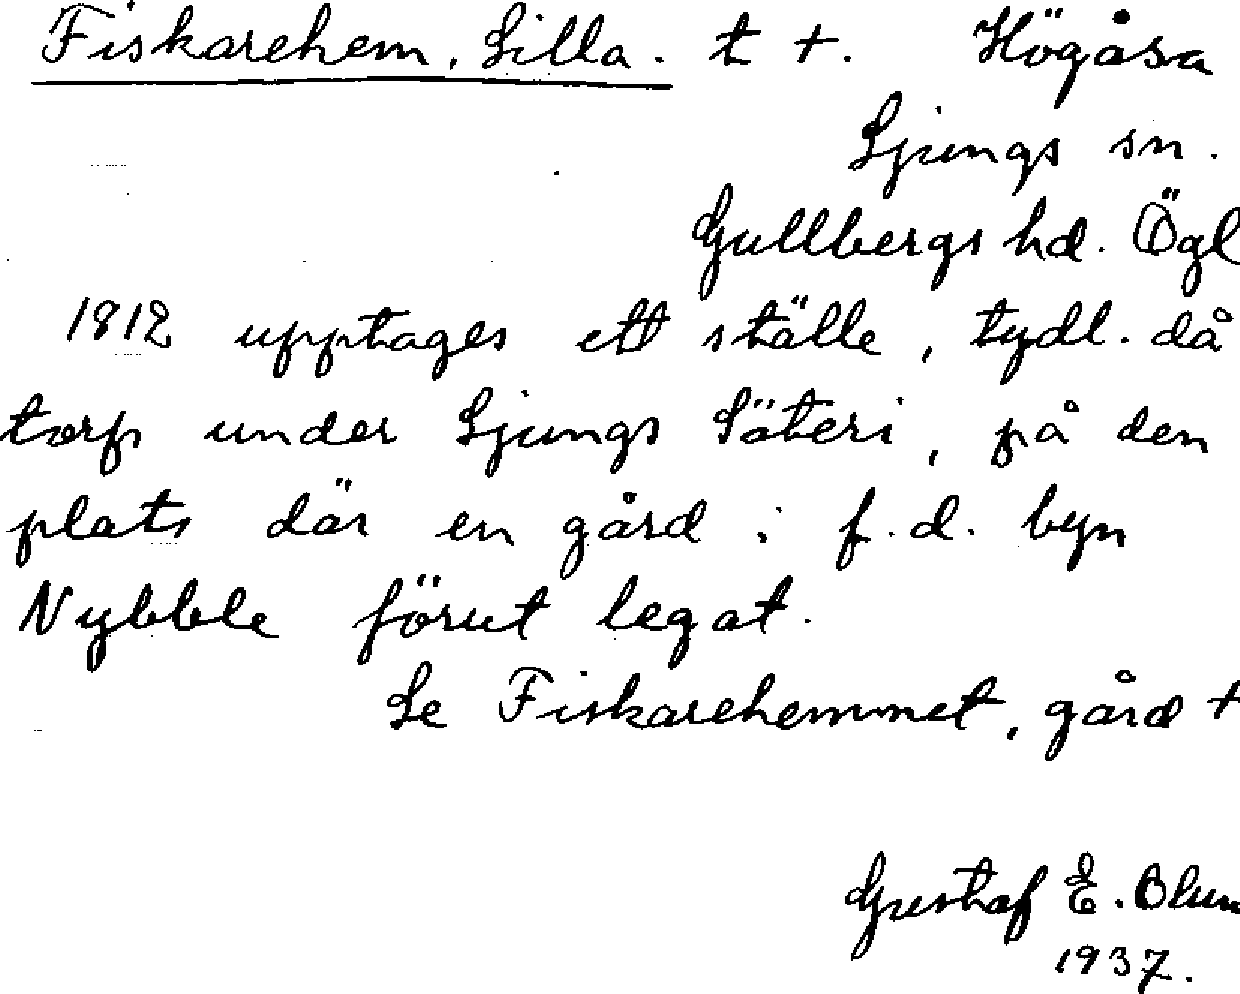 Fiskarehem, Lilla. t +. Högåsa
Ljungs sn.
Gullbergs hd. Ögl
1812 upptages ett ställe, tydl. då
torp under Ljungs Säteri, på den
plats där en gård i f.d. byn
Nybble förut legat.
Se Fiskarehemmet, gård +
Gustaf E. Blum
1937.